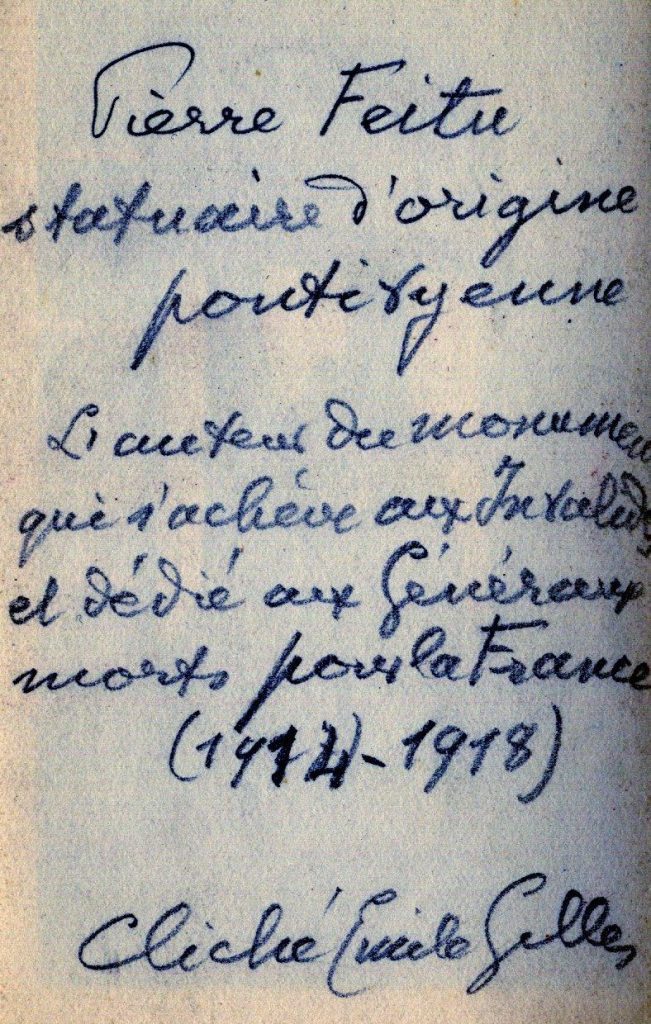 Pierre Feitu
statuaire d'origine
pontivyenne
L'auteur du monument
qui s'achève aux Invalides
et dédié aux Généraux
morts pour la France
(1914-1918)
Cliché Emile Gilles